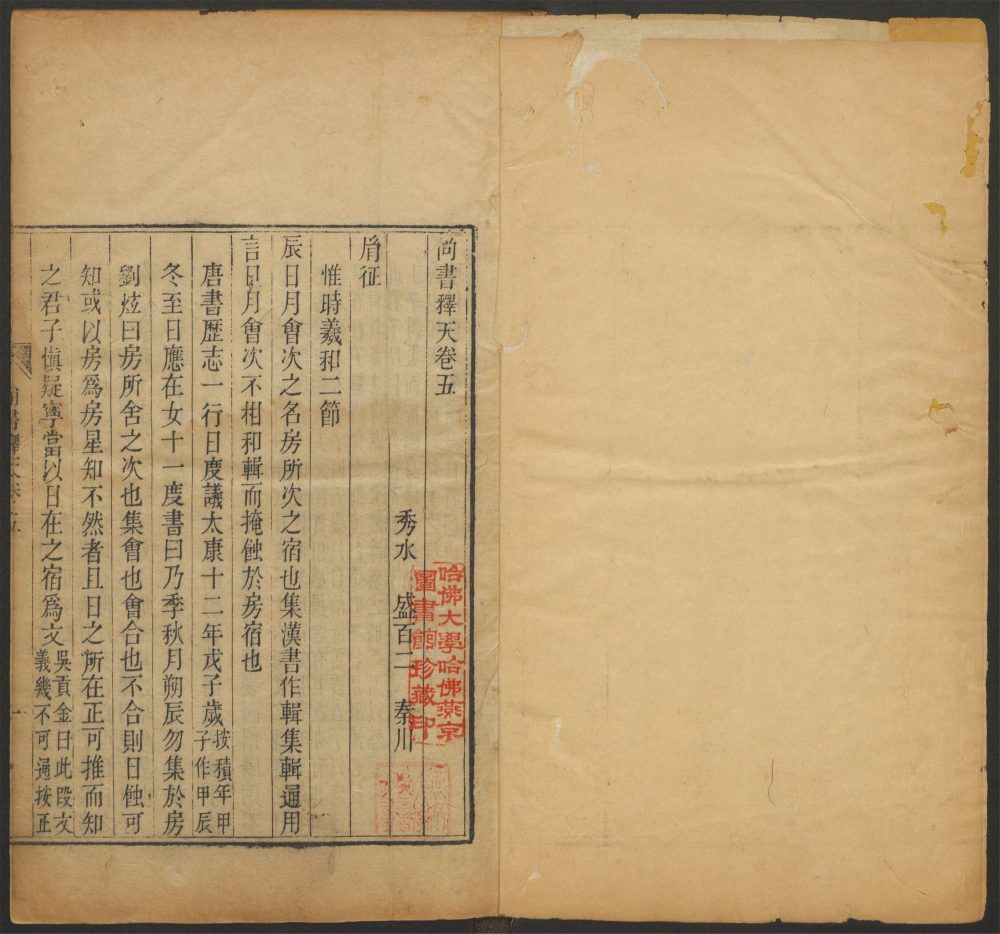 尚書釋天卷五
秀水 盛百二 秦川
哈佛大學哈佛燕京
圖書館珍藏印
胤征
惟時羲和二節
辰日月會次之名房所次之宿也集漢書作輯集輯通用
言日月會次不相和輯而掩蝕於房宿也
唐書歷志一行日度議太康十二年戊子歲按積年甲子作甲辰
冬至日應在女十一度書曰乃季秋月朔辰勿集於房
劉炫曰房所舍之次也集會也會合也不合則日蝕可
知或以房為房星知不然者且日之所在正可推而知
之君子慎疑寧當以日在之宿為文吳貢金曰此段文義幾不可通按正
尚書釋天卷五
一